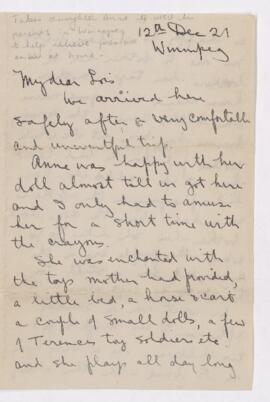 Takes daughter Anne to visit her
parents in Winnipeg
to help relieve
at home.
12th Dec 21
Winnipeg
My dear Lois
We arrived here
safely after a very comfortable
and uneventful trip.
Anne was happy with her
doll almost till we got here
and I only had to amuse
her for a short time with
the crayons.
She was enchanted with
the toys mother had provided,
a little bed, a house & cart
a couple of small dolls, a few
of Terences toy soldiers etc.
and she plays all day long